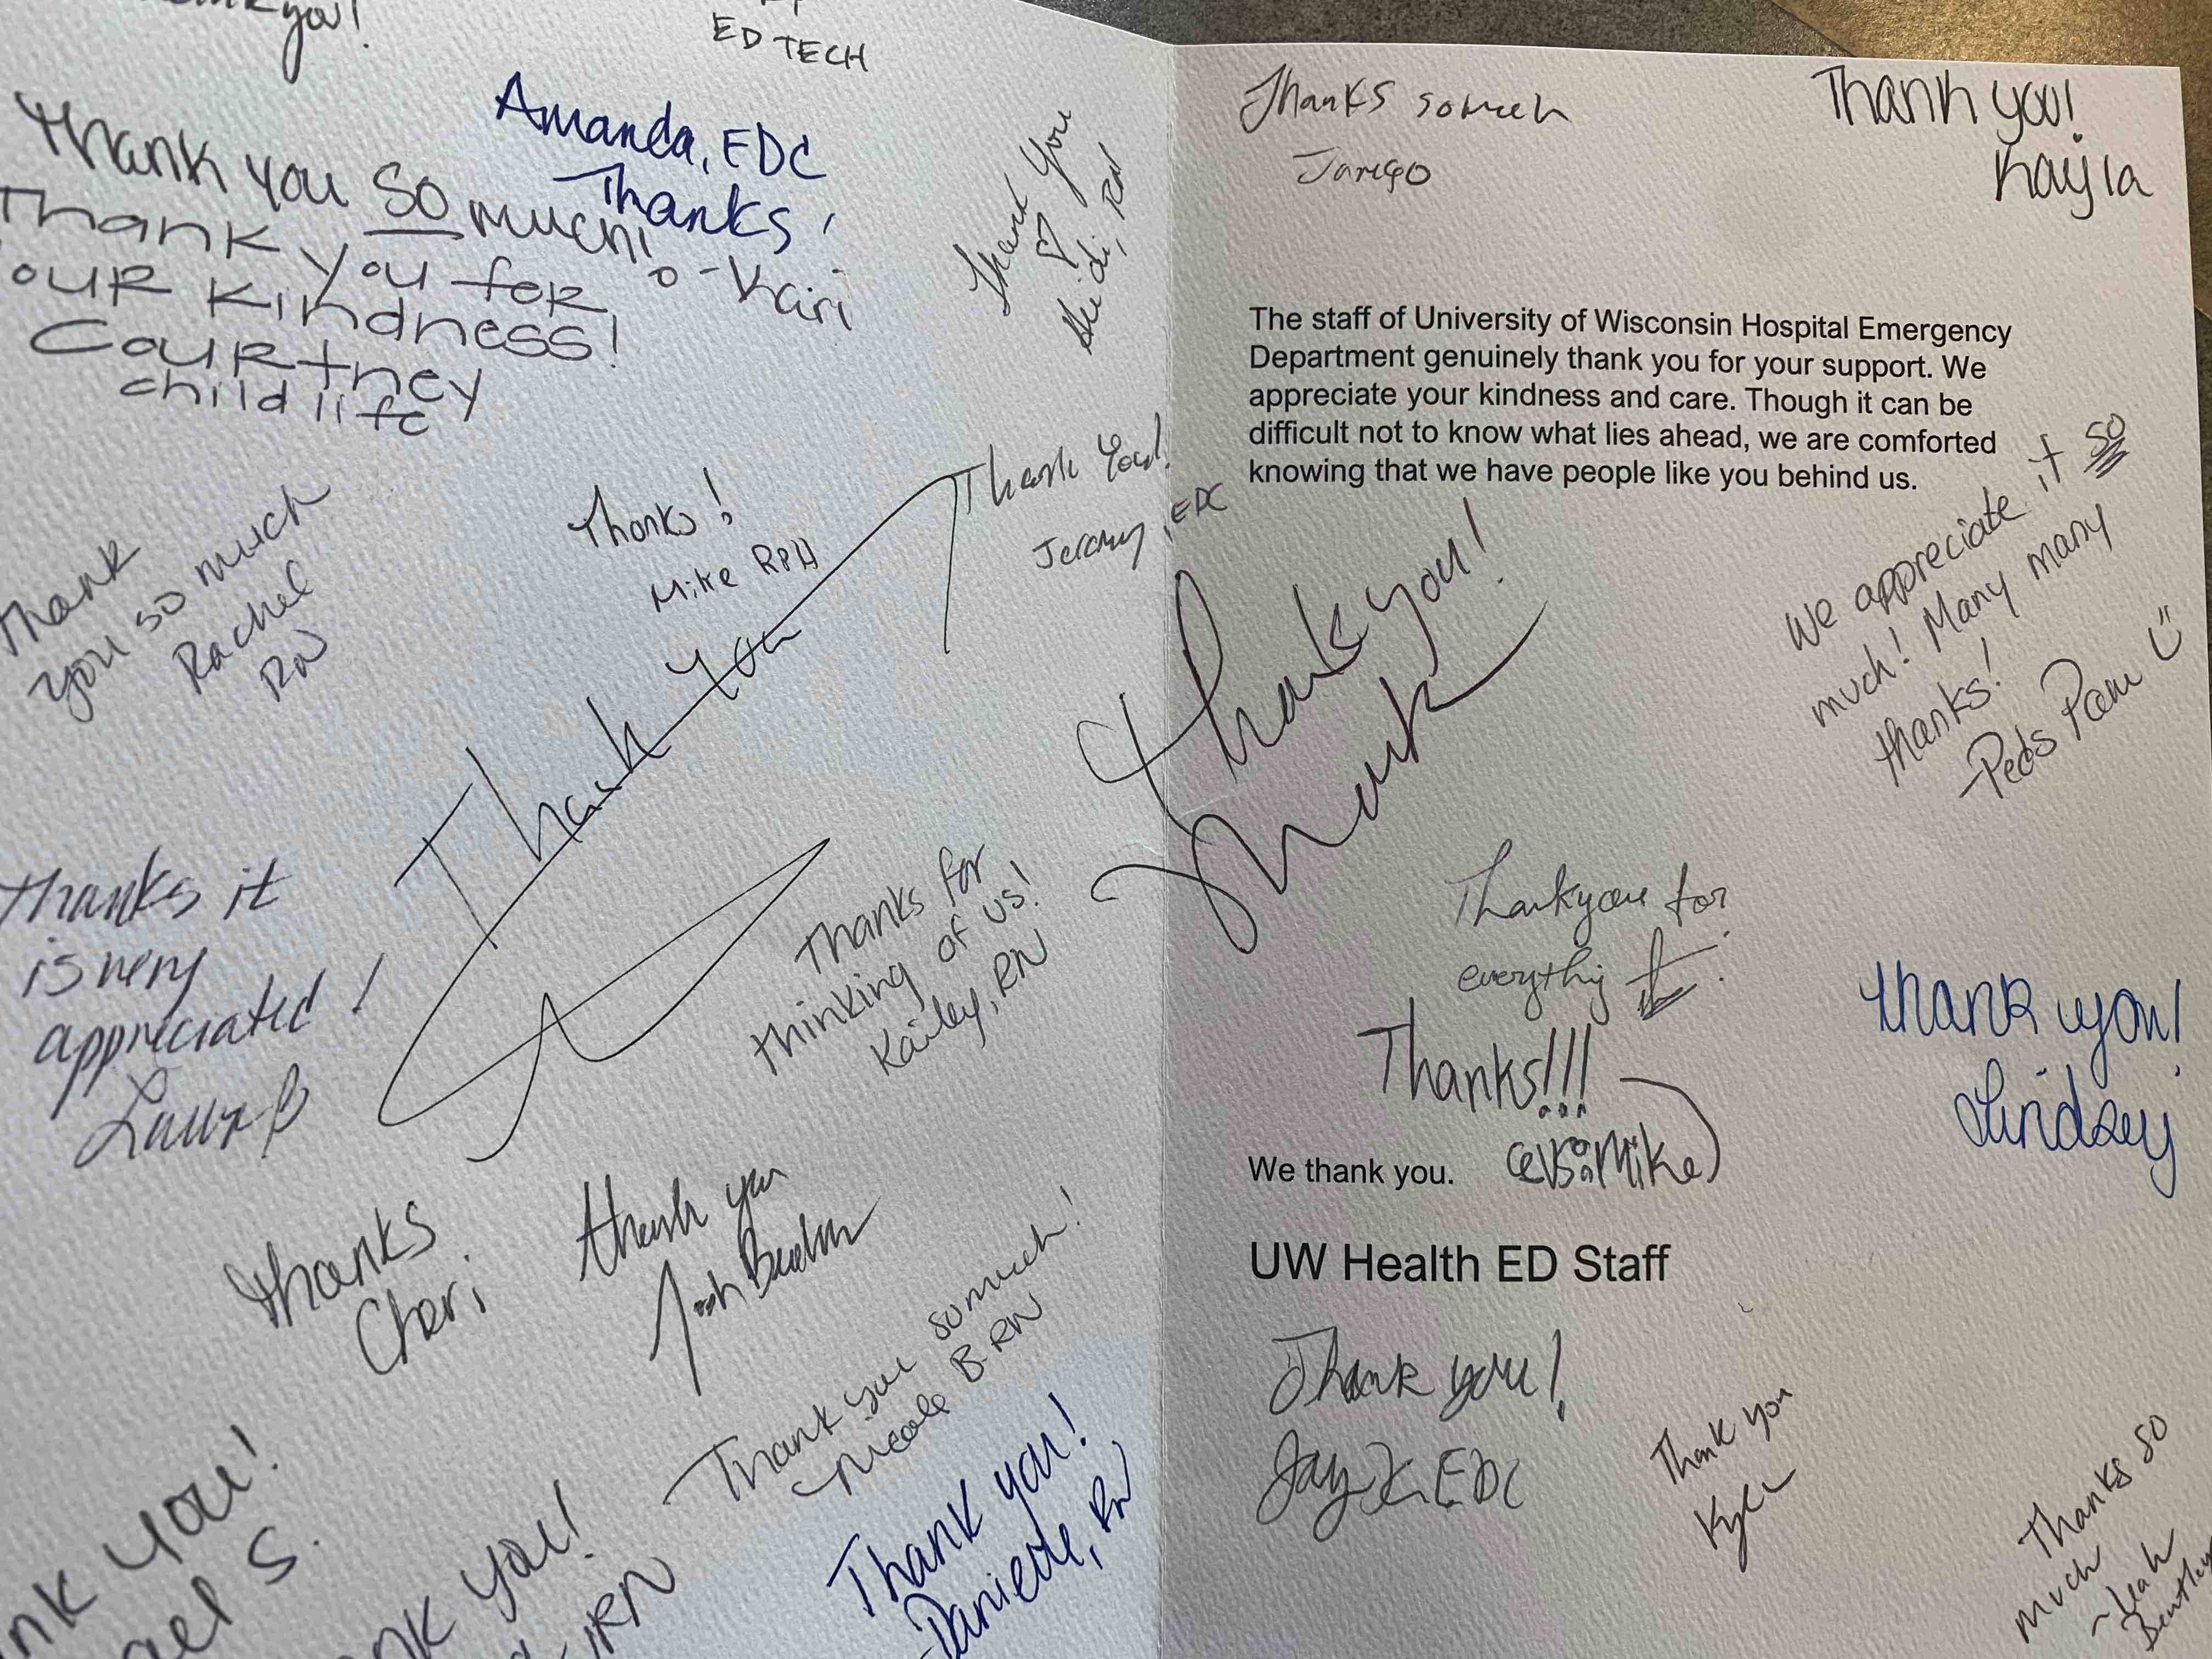 ED TECH
Amanda, EDC
Thanks!
Thank you SO much!
-Kari
Thank you for
our kindness!
Courtney
child life
Thank you
Heidi, RN
Thank
you so much
Rachel
RN
Thanks!
Mike RPH
Thank You!
Jeremy, EDC
Thank You
Thanks it
is very
appreciated!
Laura B
Thanks for
thinking of us!
Kailey, RN
Thanks
Cheri
Thank you
Josh
Thank you so much!
-Nicole B. RN
Thank you!
-Danielle, RN
nk you!
ael S.
nk you!
RN
Thanks so much
Thank you!
Kayla
The staff of University of Wisconsin Hospital Emergency
Department genuinely thank you for your support. We
appreciate your kindness and care. Though it can be
difficult not to know what lies ahead, we are comforted
knowing that we have people like you behind us.
We appreciate it so
much! Many many
thanks!
-Peds Pam
Thank you!
Mark
Thank you for
everything
Thanks!!!
Mike
Thank you!
Lindsey
We thank you.
UW Health ED Staff
Thank you!
Jay K EDC
Thank you
Kyle
Thanks so
much
~Leah
Bentley